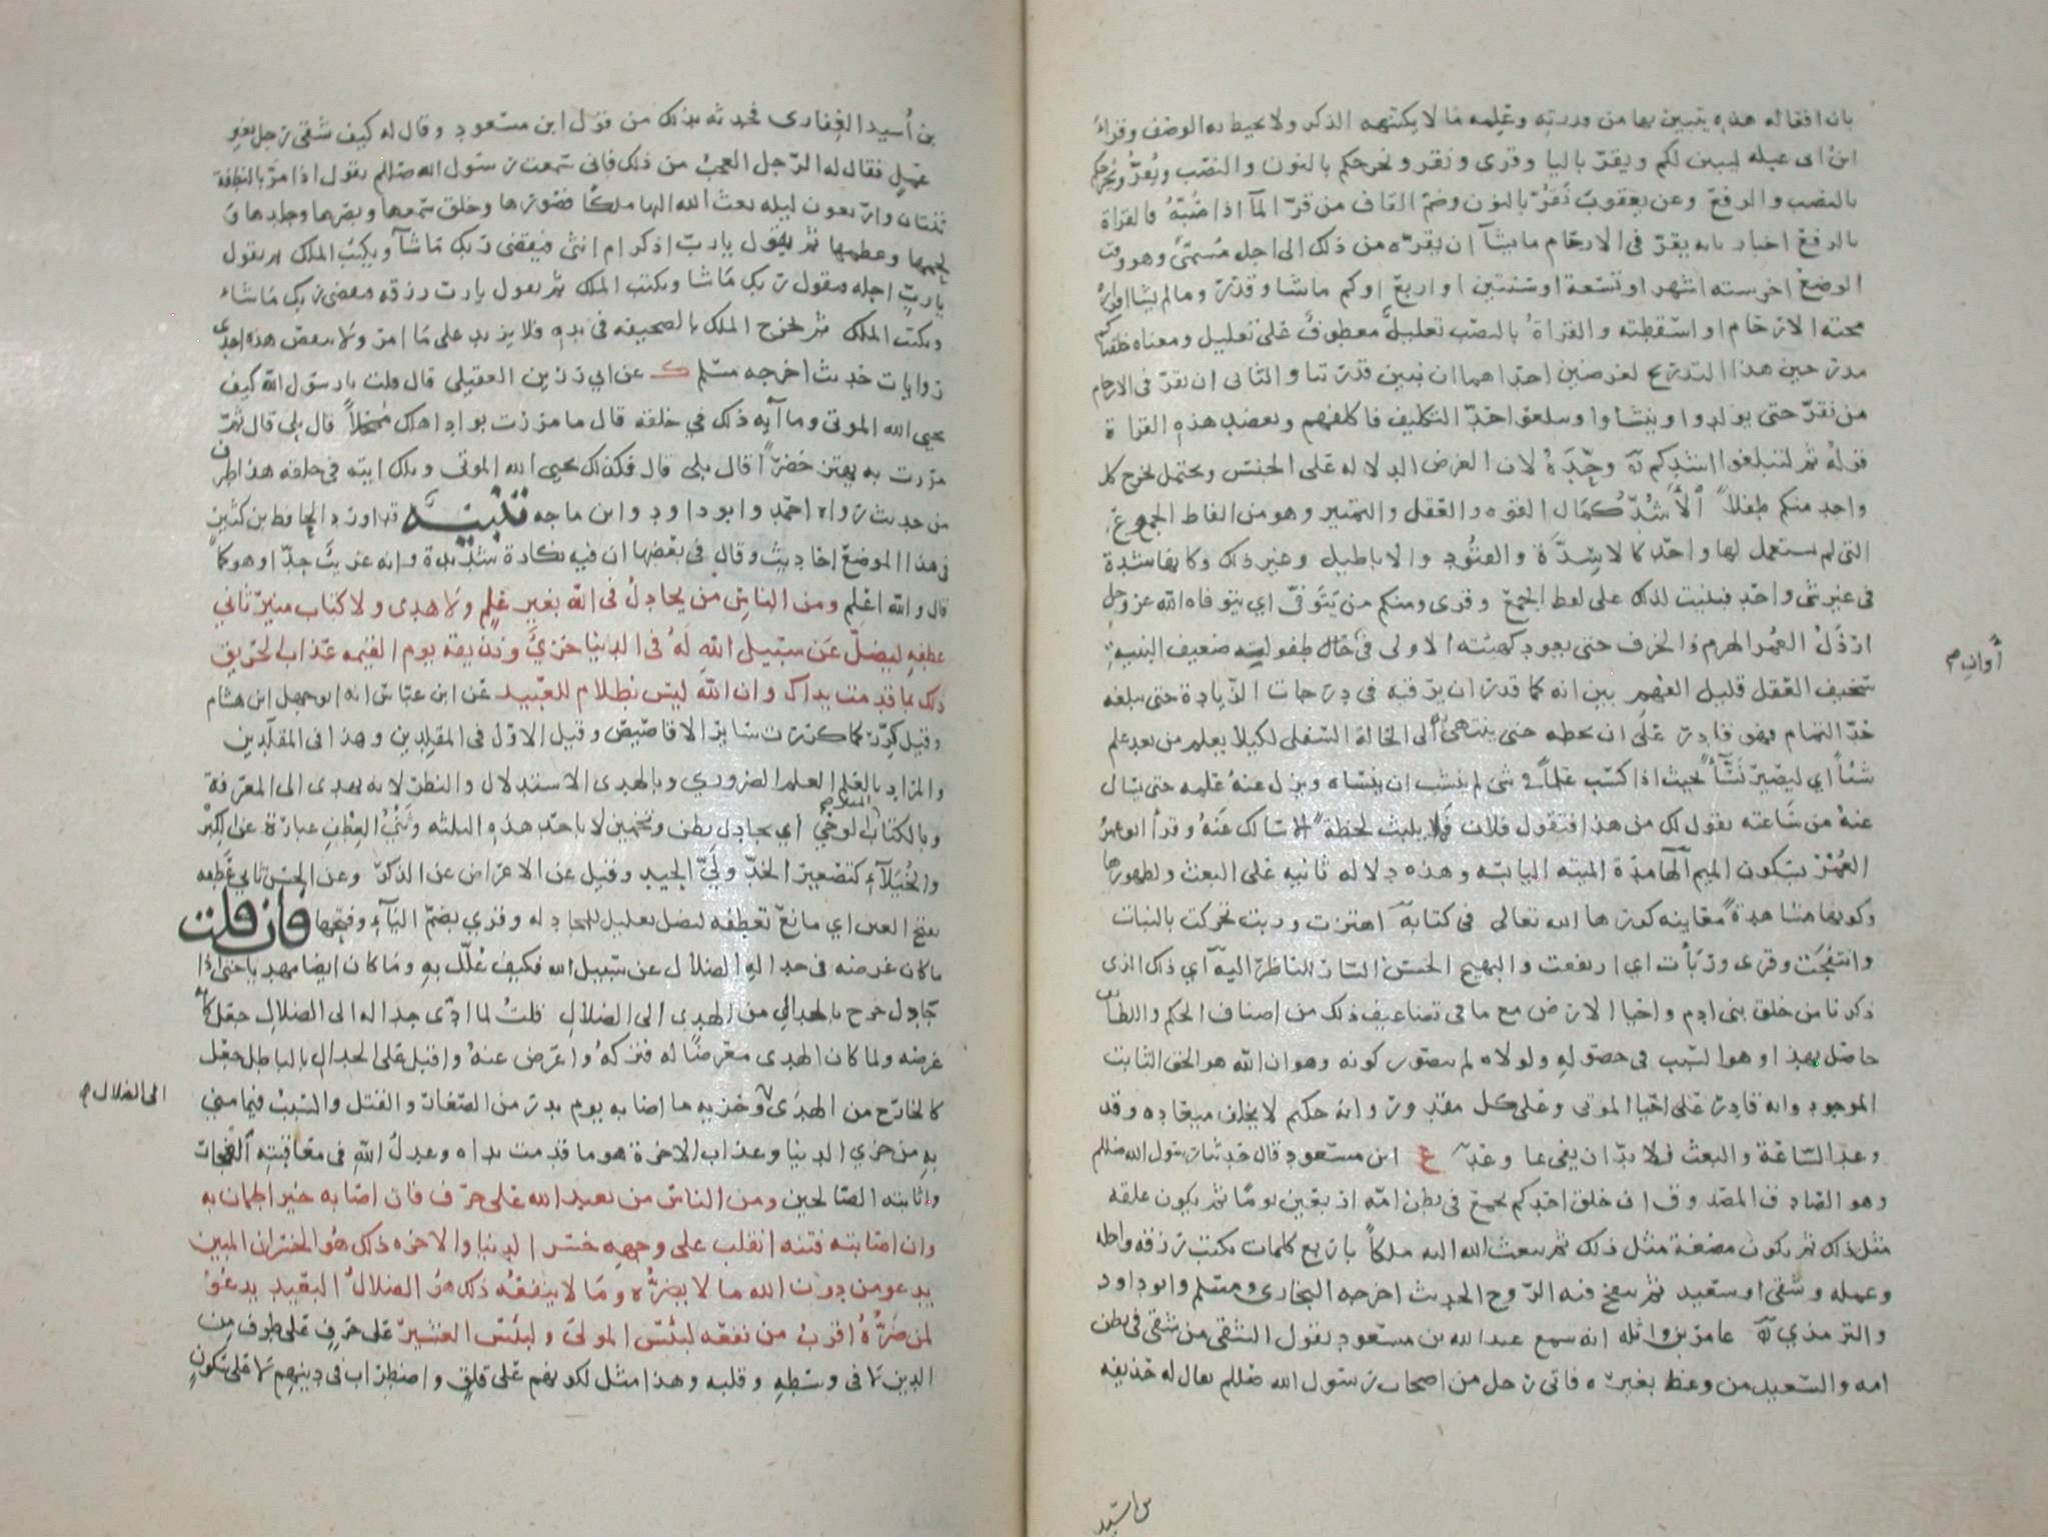 بان افعاله هذه يتبين بها من قدرته وعلمه ما لا يكتنهه الذكر ولا يحيط به الوصف وقراءة
ابن ابي عبله ليبين لكم ويقر باليا وقرى ونقر ونخرجكم بالنون والنصب ويُقرُّ ونُخرجكم
بالنصب والرفع وعن يعقوب نَقُرُّ بالنون وضم القاف من قرّ المآ اذا صَبَّهُ فالقراة
بالرفع اخبار بانه يقرّ في الارحام ما يشآ ان يقرّه من ذلك الى اجل مُسمّى وهو وقت
الوضع اخر سته اشهر او تسعة او سنتين او اربع او كم ماشا وقدر وما لم يشا اقراره
محته الارحام او اسقطته والقراة بالنصب تعليلٌ معطوفٌ على تعليل ومعناه خلقناكم
مدرجين هذا التدريج لغرضين احدهما ان نبين قدرتنا والثاني ان نقرّ في الارحام
من نقرّ حتى يولدوا وينشاوا وسلعوا احدّ التكليف فاكلفهم وىعضد هذه القراة
قوله ثم لتبلغوا اشدكم وحّده لان الغرض الدلاله على الجنس ويحتمل نخرج كل
واحد منكم طفلاً الأشُدّ كمال القوه والعقل والتمييز وهو من الفاظ الجموع
التي لم يستعمل لها واحد كالاسِدّة والقتود والاباطيل وغير ذلك وكانها شدة
في غير شي واحد فبنيت لذلك على لفظ الجمع وقرى ومنكم من يَتَوفّى اي يتوفاه الله عز وجل
ارذل العمر الهرم والخرف حتى يعود كهيئته الاولى في حال طفوليته ضعيف البنيه
سخيف العقل قليل الفهم بين انه كما قدر ان يرقيه في درجات الزيادة حتى يبلغه
حدّ التمام فهو قادر على ان يحطه حتى ينتهي به الى الحالة السفلى لكيلا يعلم من بعد علم
شئاً اي ليصير نَسّآءً بحيث اذا كسب علماً في شي لم ينشب ان ينساه ويزل عنهُ علمه حتى يسال
عنهُ من ساعته يقول لك من هذا فتقول فلان فما يلبث لحظهً الا سالك عنهُ وقرأ ابو عمرو
العُمْرَ بسكون الميم الهامدة الميته اليابسه وهذه دلاله ثانيه على البعث ولظهورها
وكونها مشاهدةً معاينه كررها الله تعالى في كتابه اهتزت وربت تحركت بالنبات
وانتفخت وقرى وربأت اي ارتفعت والبهيج الحسن السار للناظر اليه اي ذلك الذي
ذكرنا من خلق بني ادم واحيا الارض مع ما في تضاعيف ذلك من اصناف الحكم واللطائف
حاصل بهذا وهو السبب في حصوله ولولاه لم يتصور كونه وهو ان الله هو الحق الثابت
الموجود وانه قادر على احيا الموتى وعلى كل مقدور وانه حكيم لا يخلف ميعاده وقد
وعد الساعة والبعث فلا بدّ ان يفي بما وعد ع ابن مسعود قال حدثنا رسول الله صللم
وهو الصادق المصدوق ان خلق احدكم يجمع في بطن امّه اربعين يومًا ثم يكون علقه
مثل ذلك ثم يكون مضغة مثل ذلك ثم يبعث الله اليه ملكاً باربع كلمات يكتب رزقه واجله
وعمله وشقي او سعيد ثم ينفخ فيه الروح الحديث اخرجه البخاري ومسلم وابو داود
والترمذي عامر بن واثله انه سمع عبد الله بن مسعود يقول الشقي من شقي في بطن
امه والسعيد من وعظ بغيره فاتى رجل من اصحاب رسول الله صللم يقال له حذيفه
أوان م
بن أسيد الغفاري فحدثه بذلك من قول ابن مسعود وقال له كيف شقي رجل بغير
عمل فقال له الرّجل العجب من ذلك فاني سمعت رسول الله صللم يقول اذا مرّ بالنطفة
ثنتان واربعون ليله بعث الله اليها ملكًا فصورها وخلق سمعها وبصرها وجلدها و
لحمها وعظمها ثم يقول يا ربّ اذكر ام انثى فيقضي ربك ما شآ ويكتب الملك ثم يقول
يا ربّ اجله فيقول ربك ما شا ويكتب الملك ثم يقول يا رب رزقه فيقضي ربك ما شاء
ويكتب الملك ثم يخرج الملك بالصحيفه في يده فلا يزيد على ما امر ولا ينقص هذه احدى
روايات حديث اخرجه مسلم ك عن ابي رزين العقيلي قال قلت يا رسول الله كيف
يحيي الله الموتى وما آيه ذلك في خلقه قال ما مررت بواد اهلك مُمحلاً قال بلى قال ثم
مررت به يهتز خضرًا قال بلى قال فكذلك يحيي الله الموتى وذلك ايته في خلقه هذا طرف
من حديث رواه احمد وابو داود وابن ماجه تنبيه قد اورد الحافظ بن كثير
في هذا الموضع احاديث وقال في بعضها ان فيه نكارة شديدة وانه غريب جدّا وهو كما
قال والله اعلم ومن الناس من يجادل في الله بغير علم ولا هدى ولا كتاب منير ثاني
عطفه ليضلّ عَن سبيل الله لهُ في الدنيا خزيٌ ونذيقه يوم القيمه عذاب الحريق
ذلك بما قدمت يداك وان الله ليس بظلام للعبيد عن ابن عباس انه ابو جهل ابن هشام
وقيل كرّر كما كررت سائر الاقاصيص وقيل الاوّل في المقلِدين وهذا في المقلَدين
والمراد بالعلم العلم الضروري وبالهدى الاستدلال والنظر لانه يهدى الى المعرفة
وبالكتاب المنير الوحي اي يجادل بظن وتخمين لا باحد هذه الثلثه وثَنْيُ العِطْفِ عبارة عن الكِبْرِ
والخُيَلآءِ كتصعير الخدّ وليّ الجيد وقيل عن الاعراض عن الذكر وعن الحسن ثاني عَطفه
بفتح العين اي مانع تعطفه ليضل تعليل للمجادله وقرى بضم اليآء وفتحها فان قلت
ما كان غرضه في جداله الضلال عن سبيل الله فكيف عُلّل به وما كان ايضا مهديا حتى اذا
جادل خرج بالجدال من الهدى الى الضلال قلت لما ادّى جداله الى الضلال جعل كانه
غرضه ولما كان الهدى معرضًا له فتركهُ واعرض عنهُ واقبل على الجدال بالباطل جعل
كالخارج من الهدى وخزيه ما اصابه يوم بدر من الصغار والقتل والسبب فيما مني
به من خزي الدنيا وعذاب الاخرة هو ما قدمت يداه وعدل الله في معاقبته الفجار
واثابته الصالحين ومن الناس من يعبد الله على حرف فان اصابه خير اطمان به
وان اصابته فتنه انقلب على وجهه خسر الدنيا والاخره ذلك هو الخسران المبين
يدعو من دون الله ما لا يضرُّه وما لا ينفعُه ذلك هو الضلالُ البعيد يدعو
لمن ضرّهُ اقرب من نفعه لبئس المولى ولبئس العشير على حَرفٍ على طرف من
الدين لا في وسطه وقلبه وهذا مثل لكونهم على قلق واضطراب في دينهم لا على سكون
الى الضلال م
بن اسيد